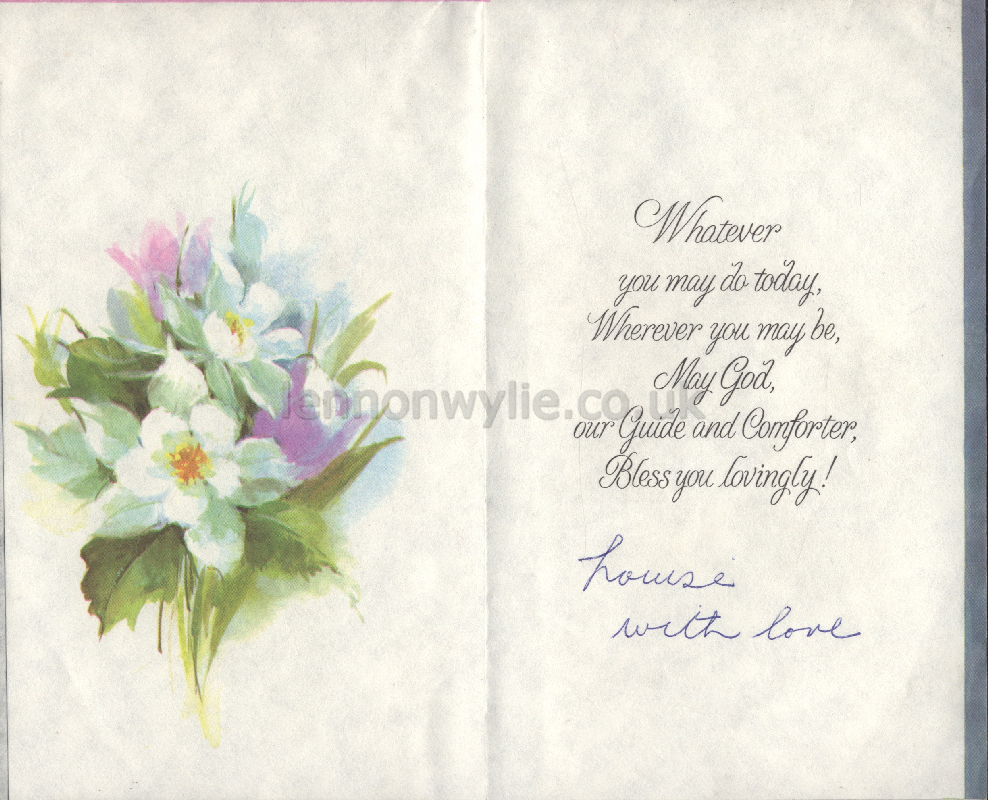 Whatever
you may do today,
Wherever you may be,
May God,
our Guide and Comforter,
Bless you lovingly!
lennonwylie.co.uk
Louise
with love